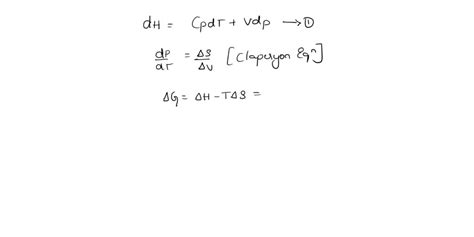 dH = CpdT + Vdp → ①
dP/dT = ΔS/ΔV [Clapeyron Eqⁿ]
ΔG = ΔH - TΔS =